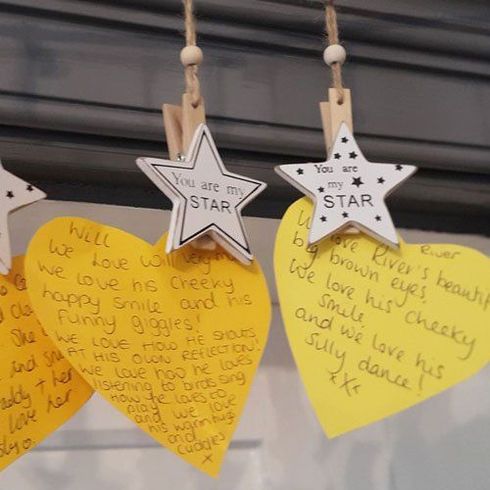 You are my
STAR
You are
my
STAR
Will
We Love Will very m
we love his cheeky
happy smile and his
funny giggles!
WE LOVE HOW HE SHOUTS
AT HIS OWN REFLECTION!
We love how he loves
listening to birds sing
How he loves to
play and we love
his warm hugs
and
cuddles
x
River
We love River's beautif
big brown eyes.
We love his cheeky
smile
and we love his
silly dance!
xXx
She
and
addy + her
love her